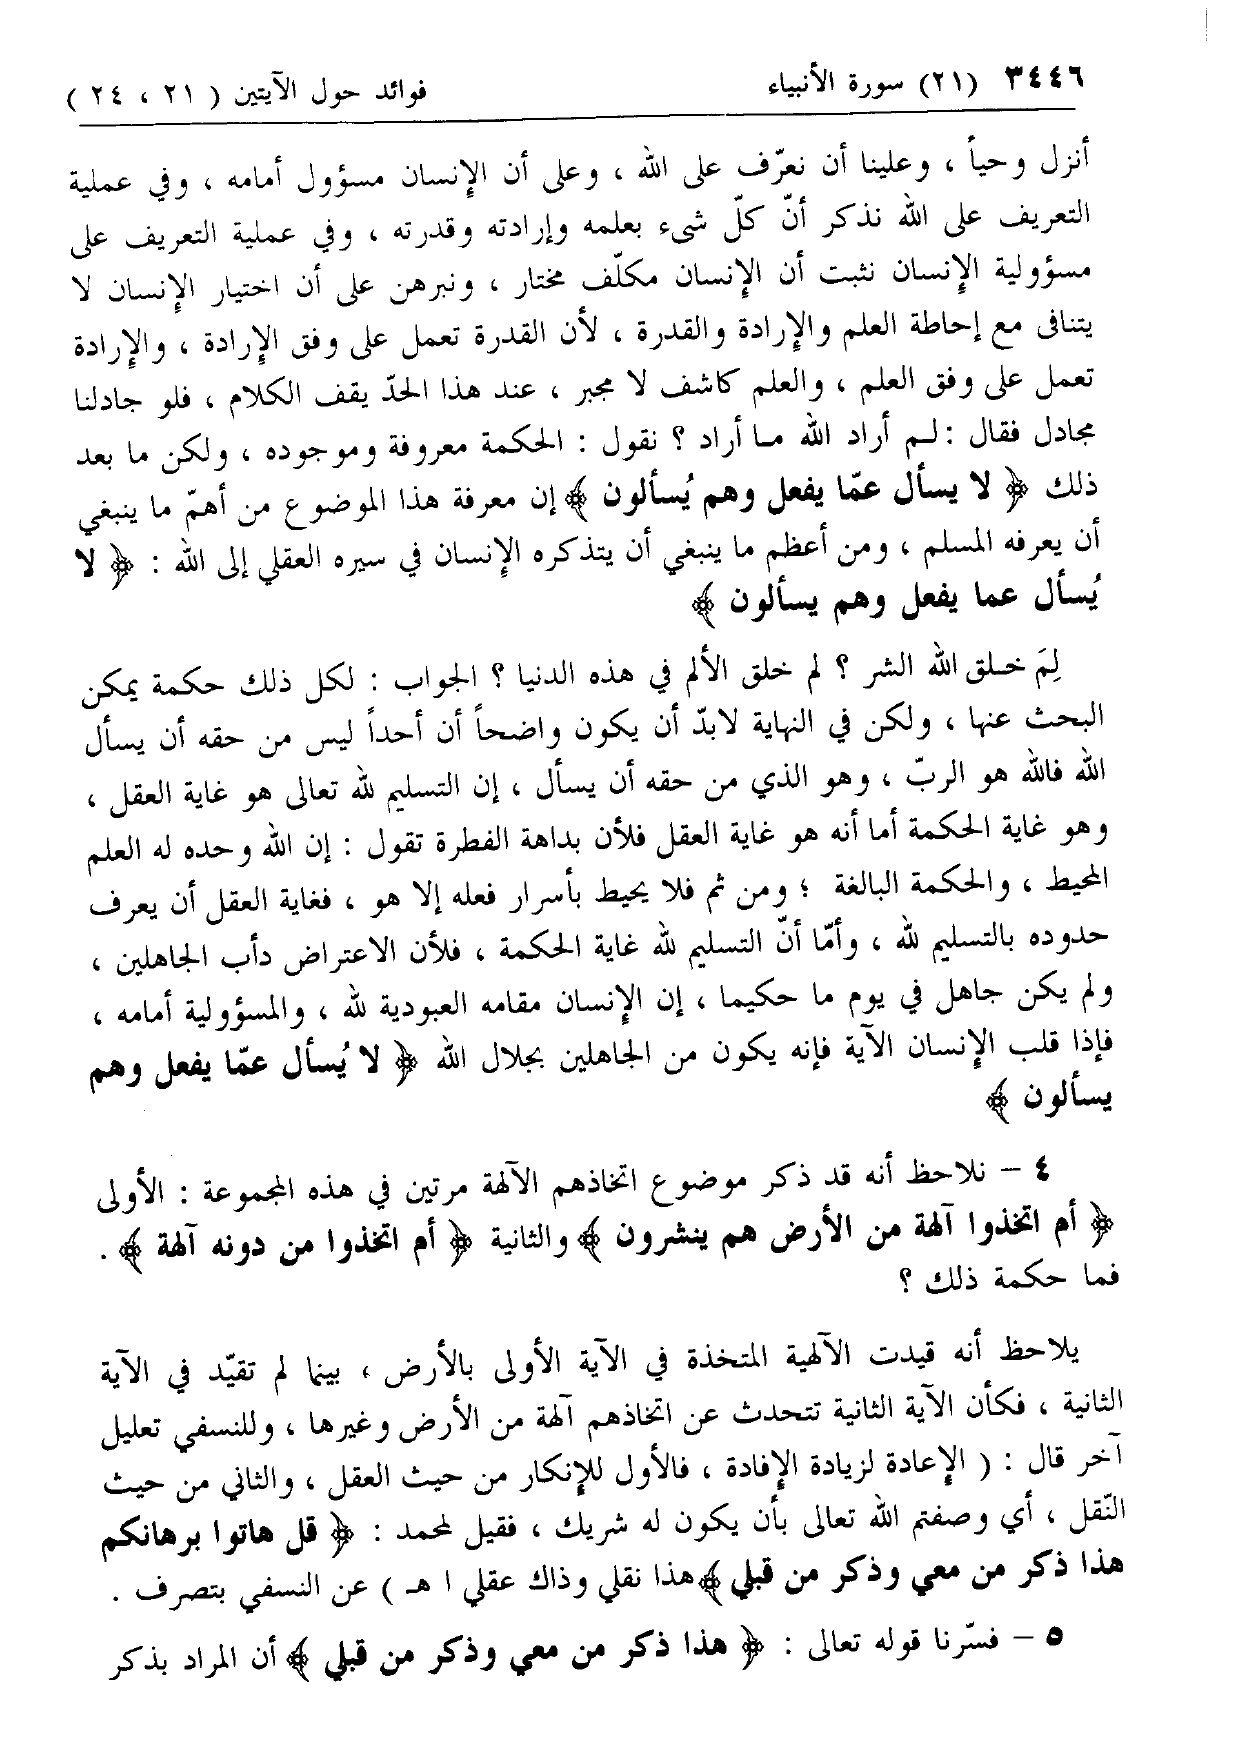 ٣٤٤٦ (٢١) سورة الأنبياء فوائد حول الآيتين ( ٢١ ، ٢٤ )
أنزل وحياً ، وعلينا أن نعرّف على الله ، وعلى أن الإنسان مسؤول أمامه ، وفي عملية
التعريف على الله نذكر أنّ كلّ شيء بعلمه وإرادته وقدرته ، وفي عملية التعريف على
مسؤولية الإنسان نثبت أن الإنسان مكلّف مختار ، ونبرهن على أن اختيار الإنسان لا
يتنافى مع إحاطة العلم والإرادة والقدرة ، لأن القدرة تعمل على وفق الإرادة ، والإرادة
تعمل على وفق العلم ، والعلم كاشف لا مجبر ، عند هذا الحدّ يقف الكلام ، فلو جادلنا
مجادل فقال : لـم أراد الله مـا أراد ؟ نقول : الحكمة معروفة وموجوده ، ولكن ما بعد
ذلك ﴿ لا يسأل عمّا يفعل وهم يُسألون ﴾ إن معرفة هذا الموضوع من أهمّ ما ينبغي
أن يعرفه المسلم ، ومن أعظم ما ينبغي أن يتذكره الإنسان في سيره العقلي إلى الله : ﴿ لا
يُسأل عما يفعل وهم يسألون ﴾
لِمَ خـلق الله الشر ؟ لم خلق الألم في هذه الدنيا ؟ الجواب : لكل ذلك حكمة يمكن
البحث عنها ، ولكن في النهاية لابدّ أن يكون واضحاً أن أحداً ليس من حقه أن يسأل
الله فالله هو الربّ ، وهو الذي من حقه أن يسأل ، إن التسليم لله تعالى هو غاية العقل ،
وهو غاية الحكمة أما أنه هو غاية العقل فلأن بداهة الفطرة تقول : إن الله وحده له العلم
المحيط ، والحكمة البالغة ؛ ومن ثم فلا يحيط بأسرار فعله إلا هو ، فغاية العقل أن يعرف
حدوده بالتسليم لله ، وأمّا أنّ التسليم لله غاية الحكمة ، فلأن الاعتراض دأب الجاهلين ،
ولم يكن جاهل في يوم ما حكيما ، إن الإنسان مقامه العبودية لله ، والمسؤولية أمامه ،
فإذا قلب الإنسان الآية فإنه يكون من الجاهلين بجلال الله ﴿ لا يُسأل عمّا يفعل وهم
يسألون ﴾
٤ – نلاحظ أنه قد ذكر موضوع اتخاذهم الآلهة مرتين في هذه المجموعة : الأولى
﴿ أم اتخذوا آلهة من الأرض هم ينشرون ﴾ والثانية ﴿ أم اتخذوا من دونه آلهة ﴾ .
فما حكمة ذلك ؟
يلاحظ أنه قيدت الآلهية المتخذة في الآية الأولى بالأرض ، بينما لم تقيّد في الآية
الثانية ، فكأن الآية الثانية تتحدث عن اتخاذهم آلهة من الأرض وغيرها ، وللنسفي تعليل
آخر قال : ( الإعادة لزيادة الإفادة ، فالأول للإنكار من حيث العقل ، والثاني من حيث
النّقل ، أي وصفتم الله تعالى بأن يكون له شريك ، فقيل لمحمد : ﴿ قل هاتوا برهانكم
هذا ذكر من معي وذكر من قبلي ﴾ هذا نقلي وذاك عقلي ا هـ ) عن النسفي بتصرف .
٥ – فسّرنا قوله تعالى : ﴿ هذا ذكر من معي وذكر من قبلي ﴾ أن المراد بذكر